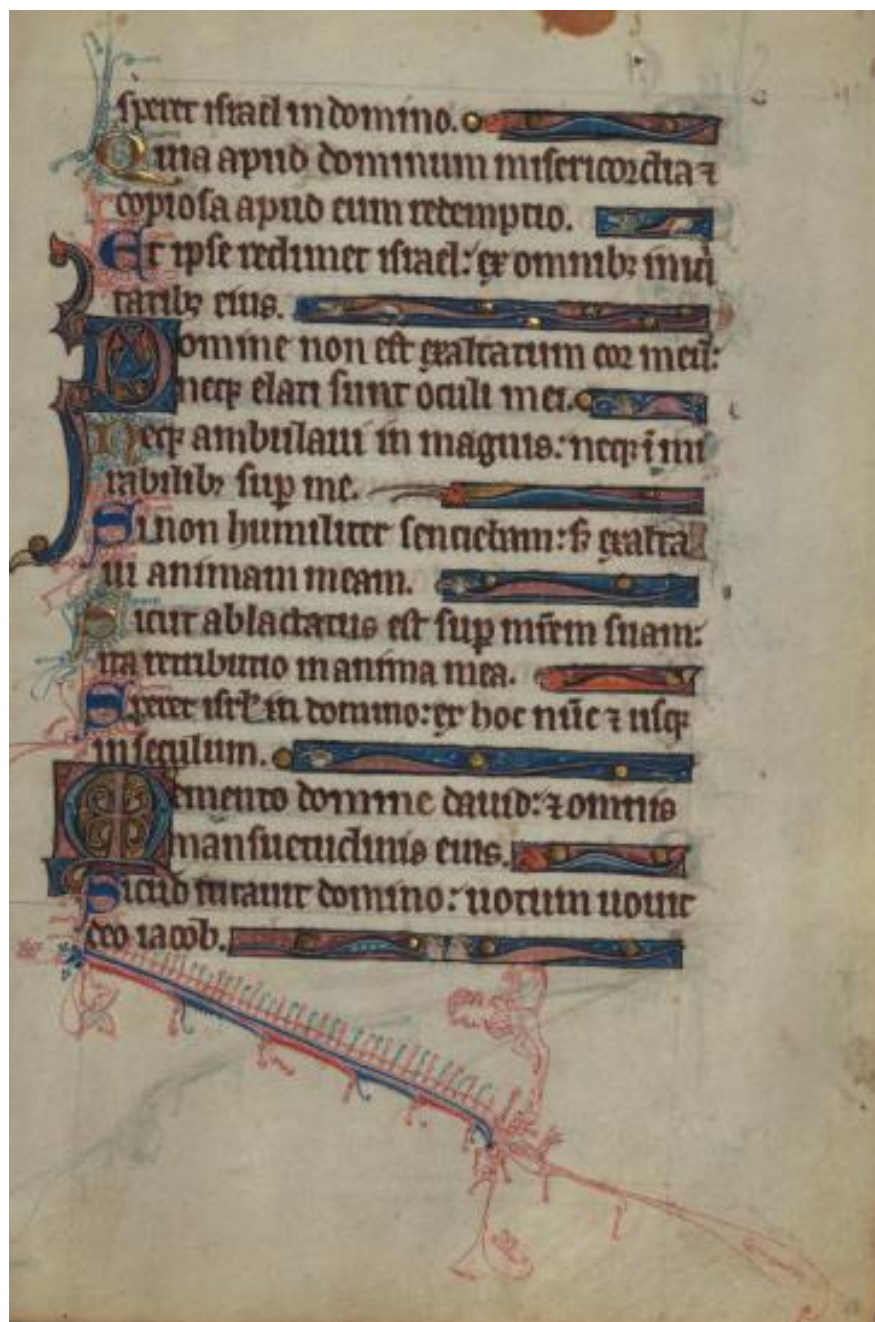 speret israel in domino.
Quia apud dominum misericordia ⁊
copiosa apud eum redemptio.
Et ipse redimet israel: ex omnibꝫ iniq̇
tatibꝫ eius.
Domine non est exaltatum cor meū:
neqꝫ elati sunt oculi mei.
Neqꝫ ambulaui in magnis: neqꝫ ī mi
rabilibꝫ suꝑ me.
Si non humiliter sentiebam: sꝫ exalta
ui animam meam.
Sicut ablactatus est suꝑ mr̄em suam:
ita retributio in anima mea.
Speret isrl̄ in domino: ex hoc nūc ⁊ usqꝫ
in seculum.
Memento domine dauid: ⁊ omnis
mansuetudinis eius.
Sicud iurauit domino: uotum uouit
deo iacob.